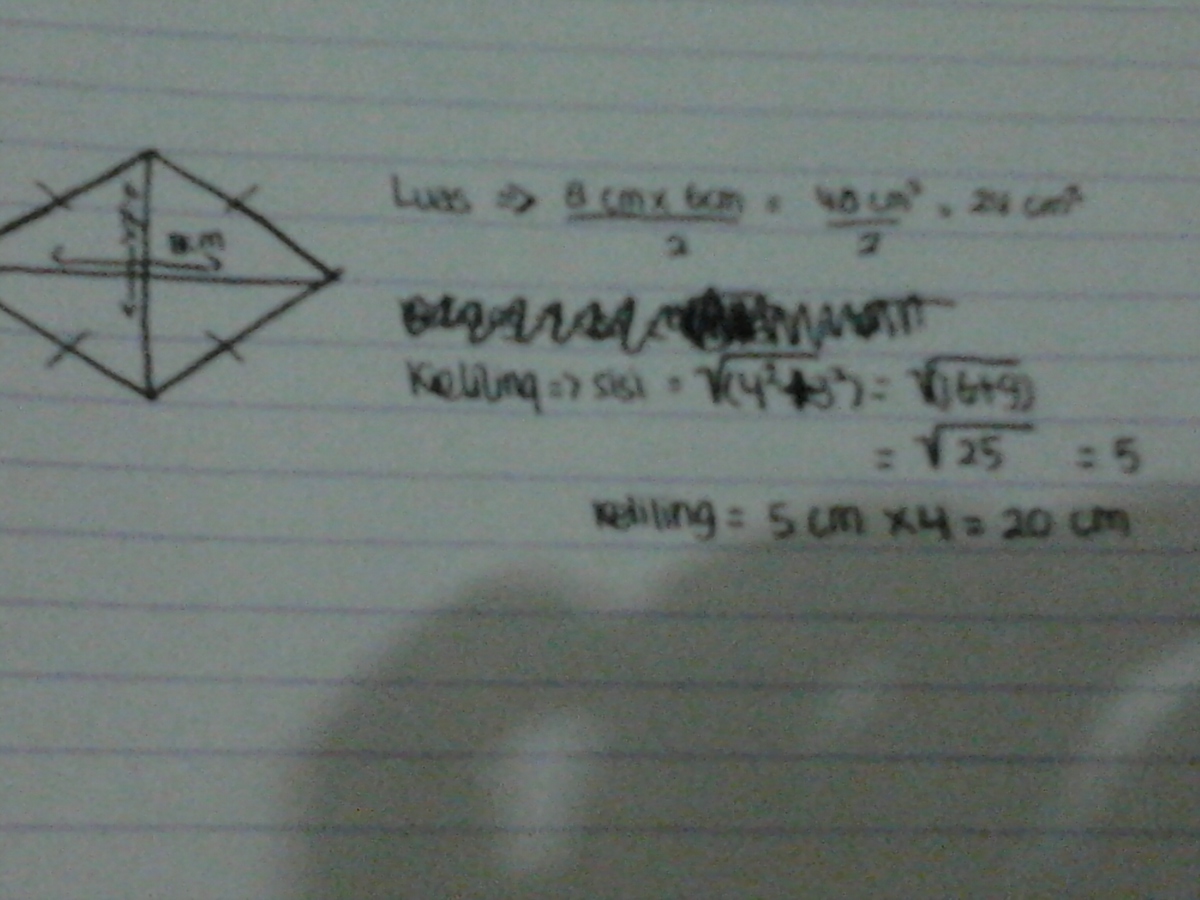 Luas => 8 cm x 6cm / 2 = 48 cm² / 2 = 24 cm²
Keliling => sisi = √(4²+3²) = √(16+9)
= √25 = 5
Keliling = 5 cm x 4 = 20 cm